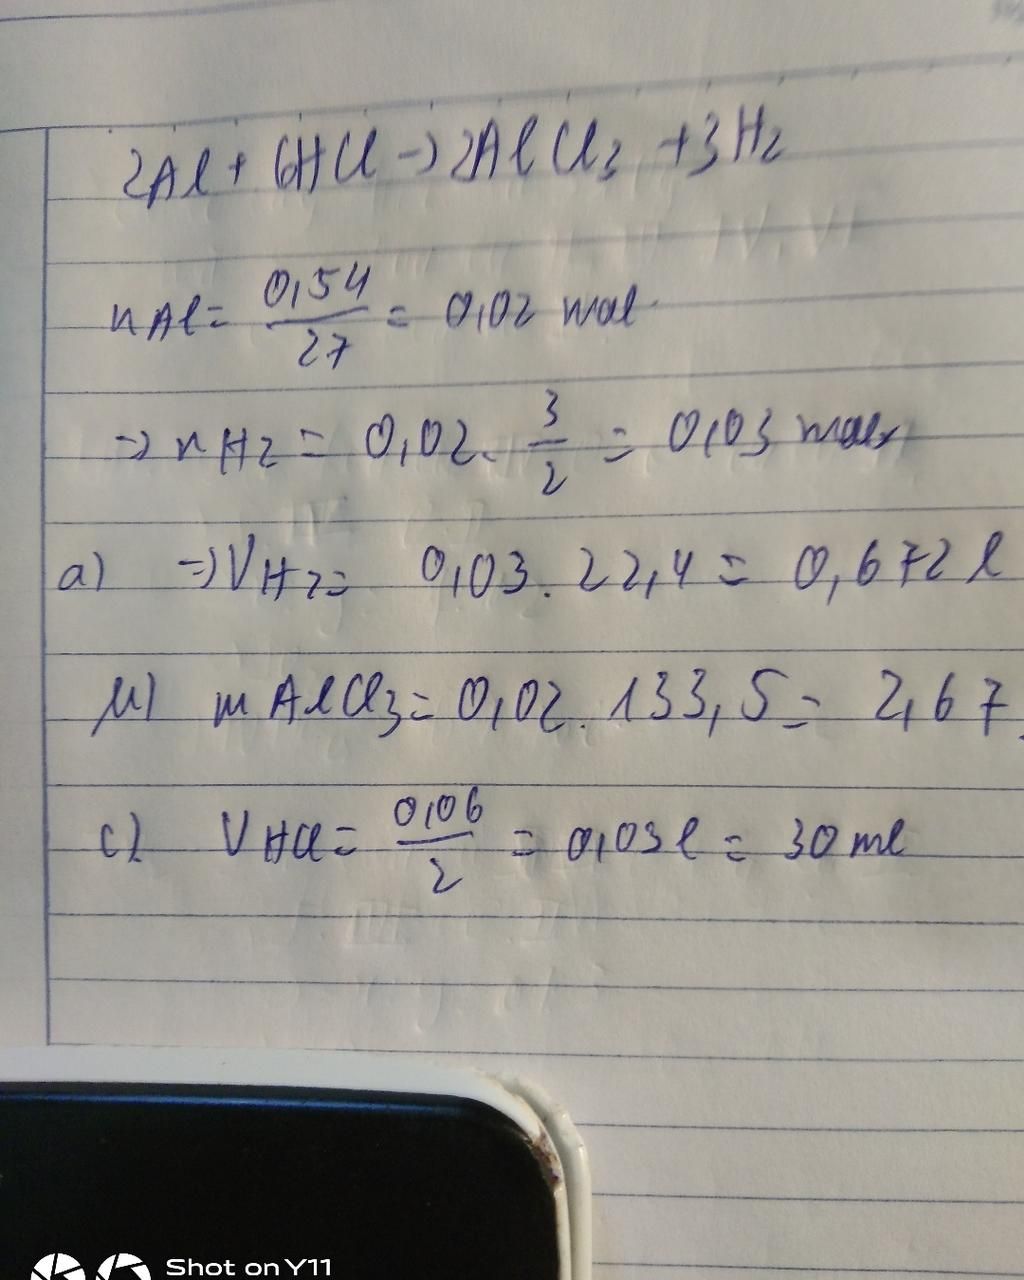 2Al + 6HCl -> 2AlCl3 + 3H2
nAl = 0,54/27 = 0,02 mol
=> nH2 = 0,02. 3/2 = 0,03 mol
a) => VH2 = 0,03. 22,4 = 0,672 l
b) mAlCl3 = 0,02. 133,5 = 2,67
c) VHCl = 0,06/2 = 0,03l = 30 ml
Shot on Y11